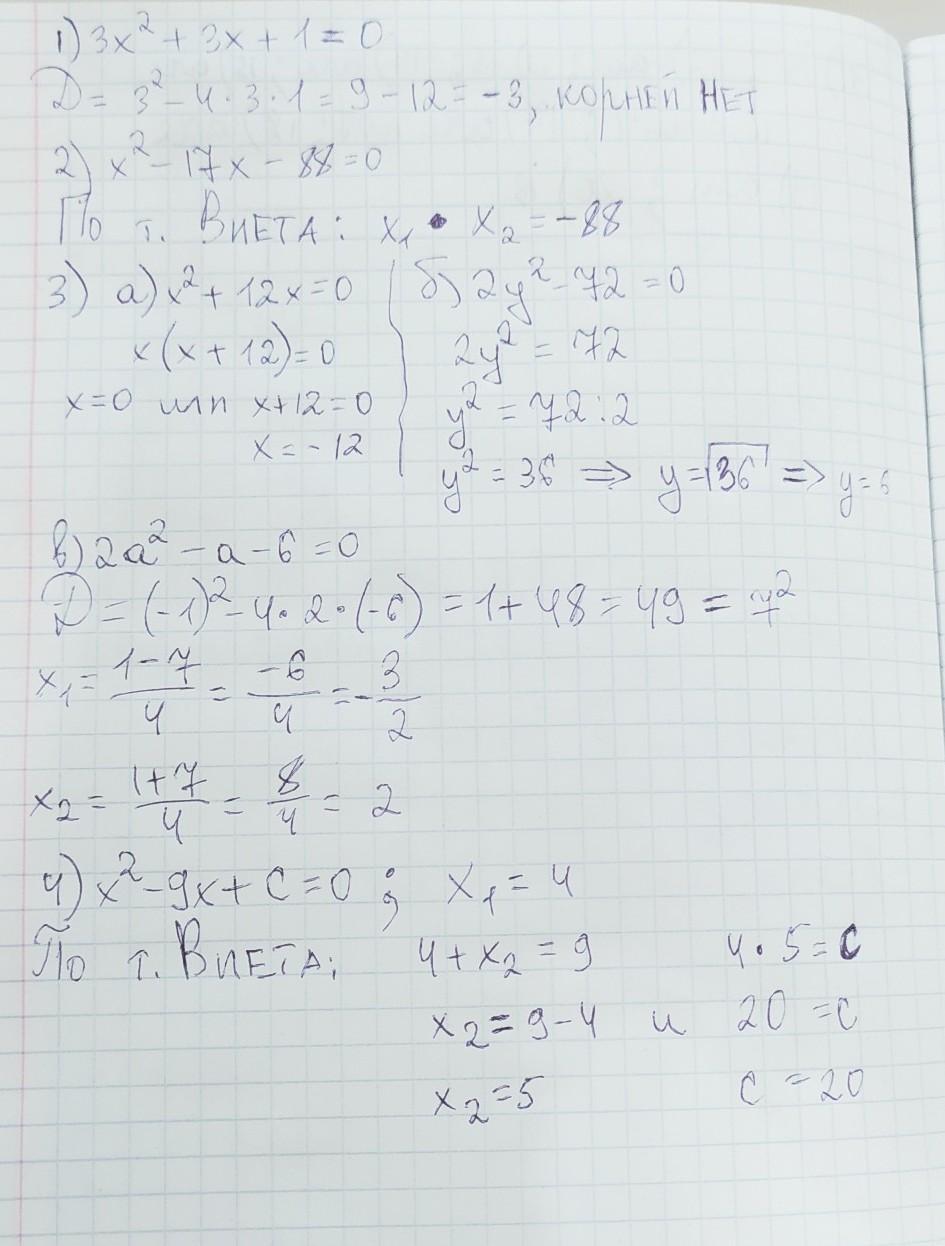 1) 3x² + 3x + 1 = 0
D = 3² - 4 · 3 · 1 = 9 - 12 = -3, корней нет
2) x² - 17x - 88 = 0
По т. Виета: x₁ · x₂ = -88
3) а) x² + 12x = 0
x(x + 12) = 0
x = 0 или x + 12 = 0
x = -12
б) 2y² - 72 = 0
2y² = 72
y² = 72 : 2
y² = 36 ⇒ y = √36 ⇒ y = 6
в) 2a² - a - 6 = 0
D = (-1)² - 4 · 2 · (-6) = 1 + 48 = 49 = 7²
x₁ = (1 - 7)/4 = -6/4 = -3/2
x₂ = (1 + 7)/4 = 8/4 = 2
4) x² - 9x + C = 0 ; x₁ = 4
По т. Виета: 4 + x₂ = 9 4 · 5 = C
x₂ = 9 - 4 и 20 = C
x₂ = 5 C = 20